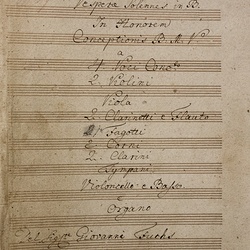 Vesperæ Solennes in B.
In Honorem
Conceptionis B. M. V.
a
4 Voci Conc:
2. Violini
Viola
2. Clarinetti e Flauto
Fagotti
2 Corni
2. Clarini
Tympani
Violoncello e Basso
Organo
Del Sig: Giovanni Fuchs